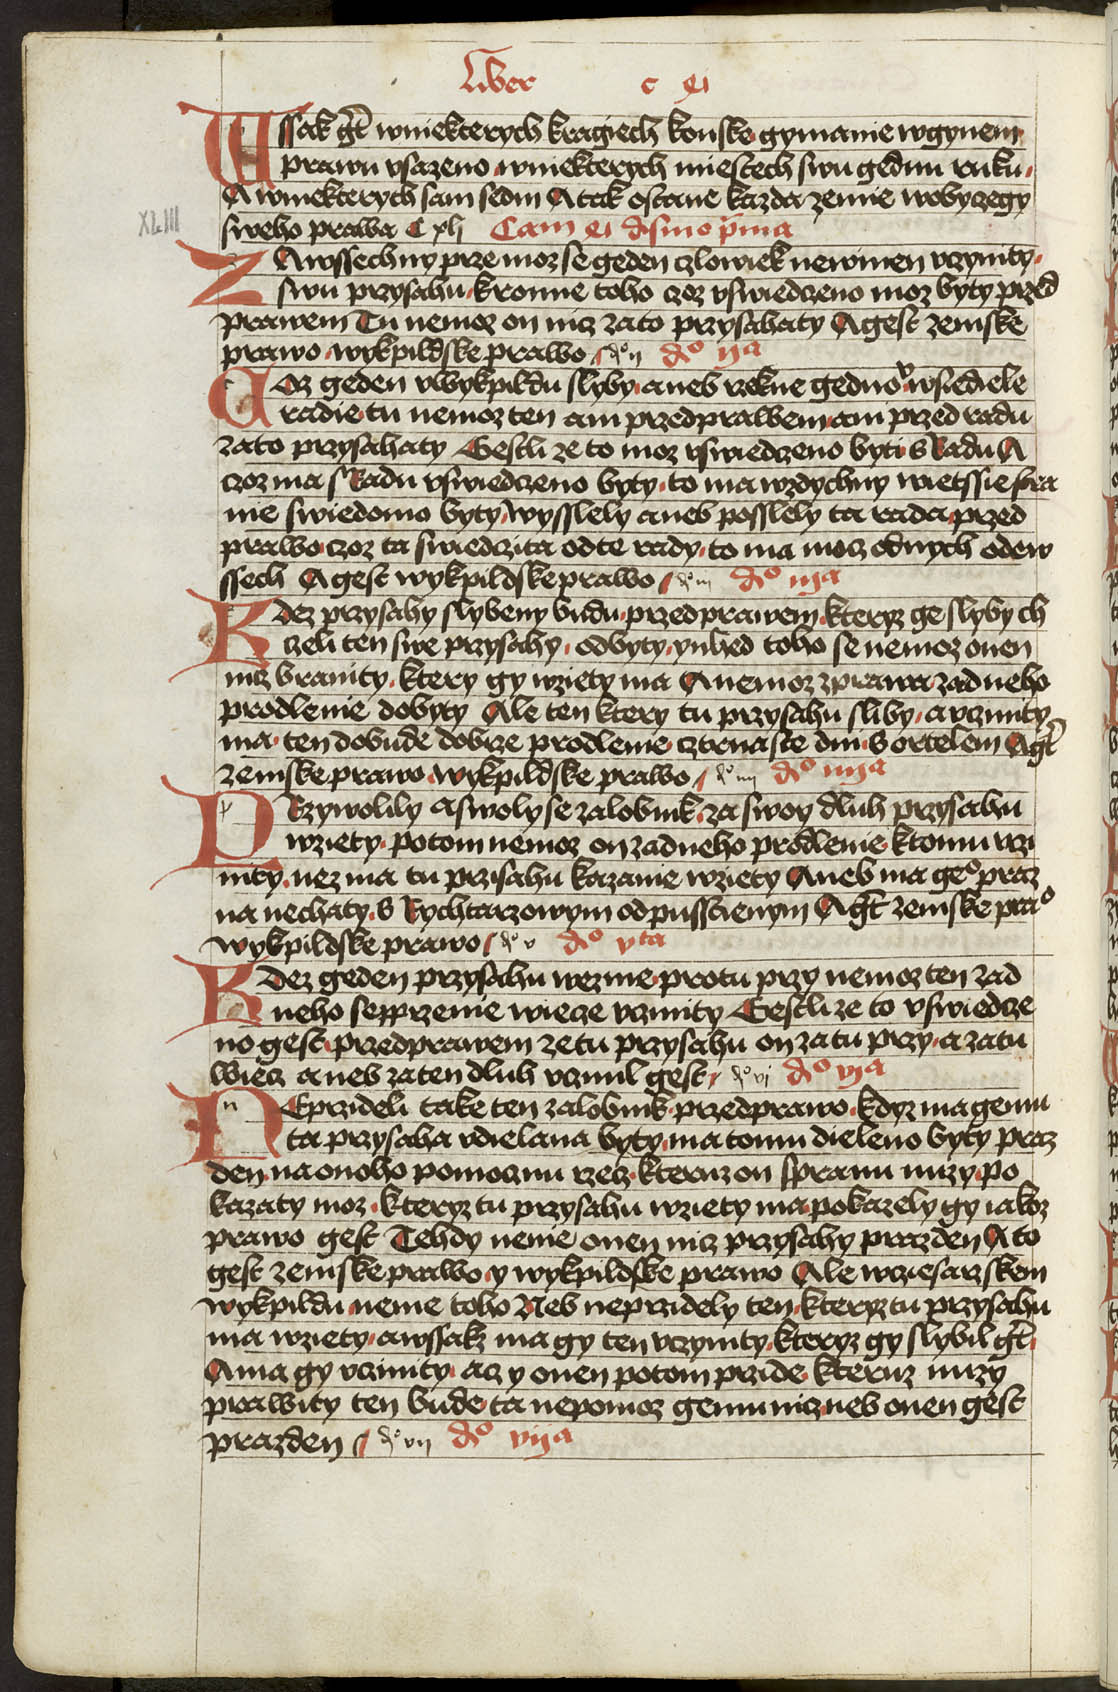 Liber c xi
Wssak gt wniekterych kragiech konske gymanie wgynem
prawu vsazeno wniekterych miestech swu gednu ruku
A wniekterych sam sedm A tak ostane kazda zemie wobyczegy
XLIII
sweho prawa C xlj Cam xi distinctio prima
ZA wssechny prze moz se geden czlowiek newinen vczynity
swu przysahu kromie toho czoz vswiedczeno moz byty przed
prawem Tu nemoz on nicz zato przysahaty A gest zemske
prawo wykpildske prawo do ij do ija
Coz geden vwykpildu slyby aneb rzekne gednov wsiediele
radie tu nemoz ten ani przed prawem ani przed radu
zato przysahaty Gestli ze to moz vswiedczeno byti s Radu A
czoz ma s Radu vswiedczeno byty to ma wzdychny wietssie stra
nie swiedomo byty wysslely aneb posslely ta rada przed
prawo czoz ta swiedczita od te rady to ma mocz od nych odew
ssech A gest wykpildske prawo do iij do iija
Kdez przysahy slybeny budu przed prawem kteryz ge slyby ch
czeli ten swe przysahy odbyty ynhed toho se nemoz onen
nicz branity ktery gy wziety ma A nemoz zprawa zadneho
prodlenie dobyty Ale ten ktery tu przysahu sliby a vczinity
ma ten dobude dobrze prodlenie cztrnaste dni s ortelem A gt
zemske prawo wykpildske prawo do iiij do iiija
Przywolily a swoly se zalobnik za swoy dluh przysahu
wziety potom nemoz on zadneho prodlenie ktomu vczi
nity nez ma tu przisahu kazanie wziety Aneb ma geo praz
na nechaty s Rychtarzowym odpusstienym A gt zemske prao
wykpildske prawo do v do vta
Kdez geden przysahu wezme protu przy nemoz ten zad
neho sepprzenie wiecze vczinity Gestli ze to vswiedcze
no gest przed prawem ze tu przysahu on za tu przy a za tu
wiecz aneb za ten dluh vczinil gest do vj do vja
NEprzideli take ten zalobnik przed prawo kdyz ma gemu
ta przysaha vdielana byty ma tomu dieleno byty praz
den na onoho pomocznu rzecz kteruz on sprawu muzy po
kazaty moz kteryz tu przysahu wziety ma pokazely gy iakoz
prawo gest Tehdy nenie onen nicz przysahy prazden A to
gest zemske prawo y wykpildske prawo Ale wcziesarskem
wykpildu nenie toho Neb neprzidely ten kteryz tu przysahu
ma wziety awssakz ma gy ten vczynity kteryz gy slybil gt
A ma gy vczinity acz y onen potom przide kteruz muzy
prawity ten bude ta nepomoz gemu nicz neb onen gest
prazden do vij do vija